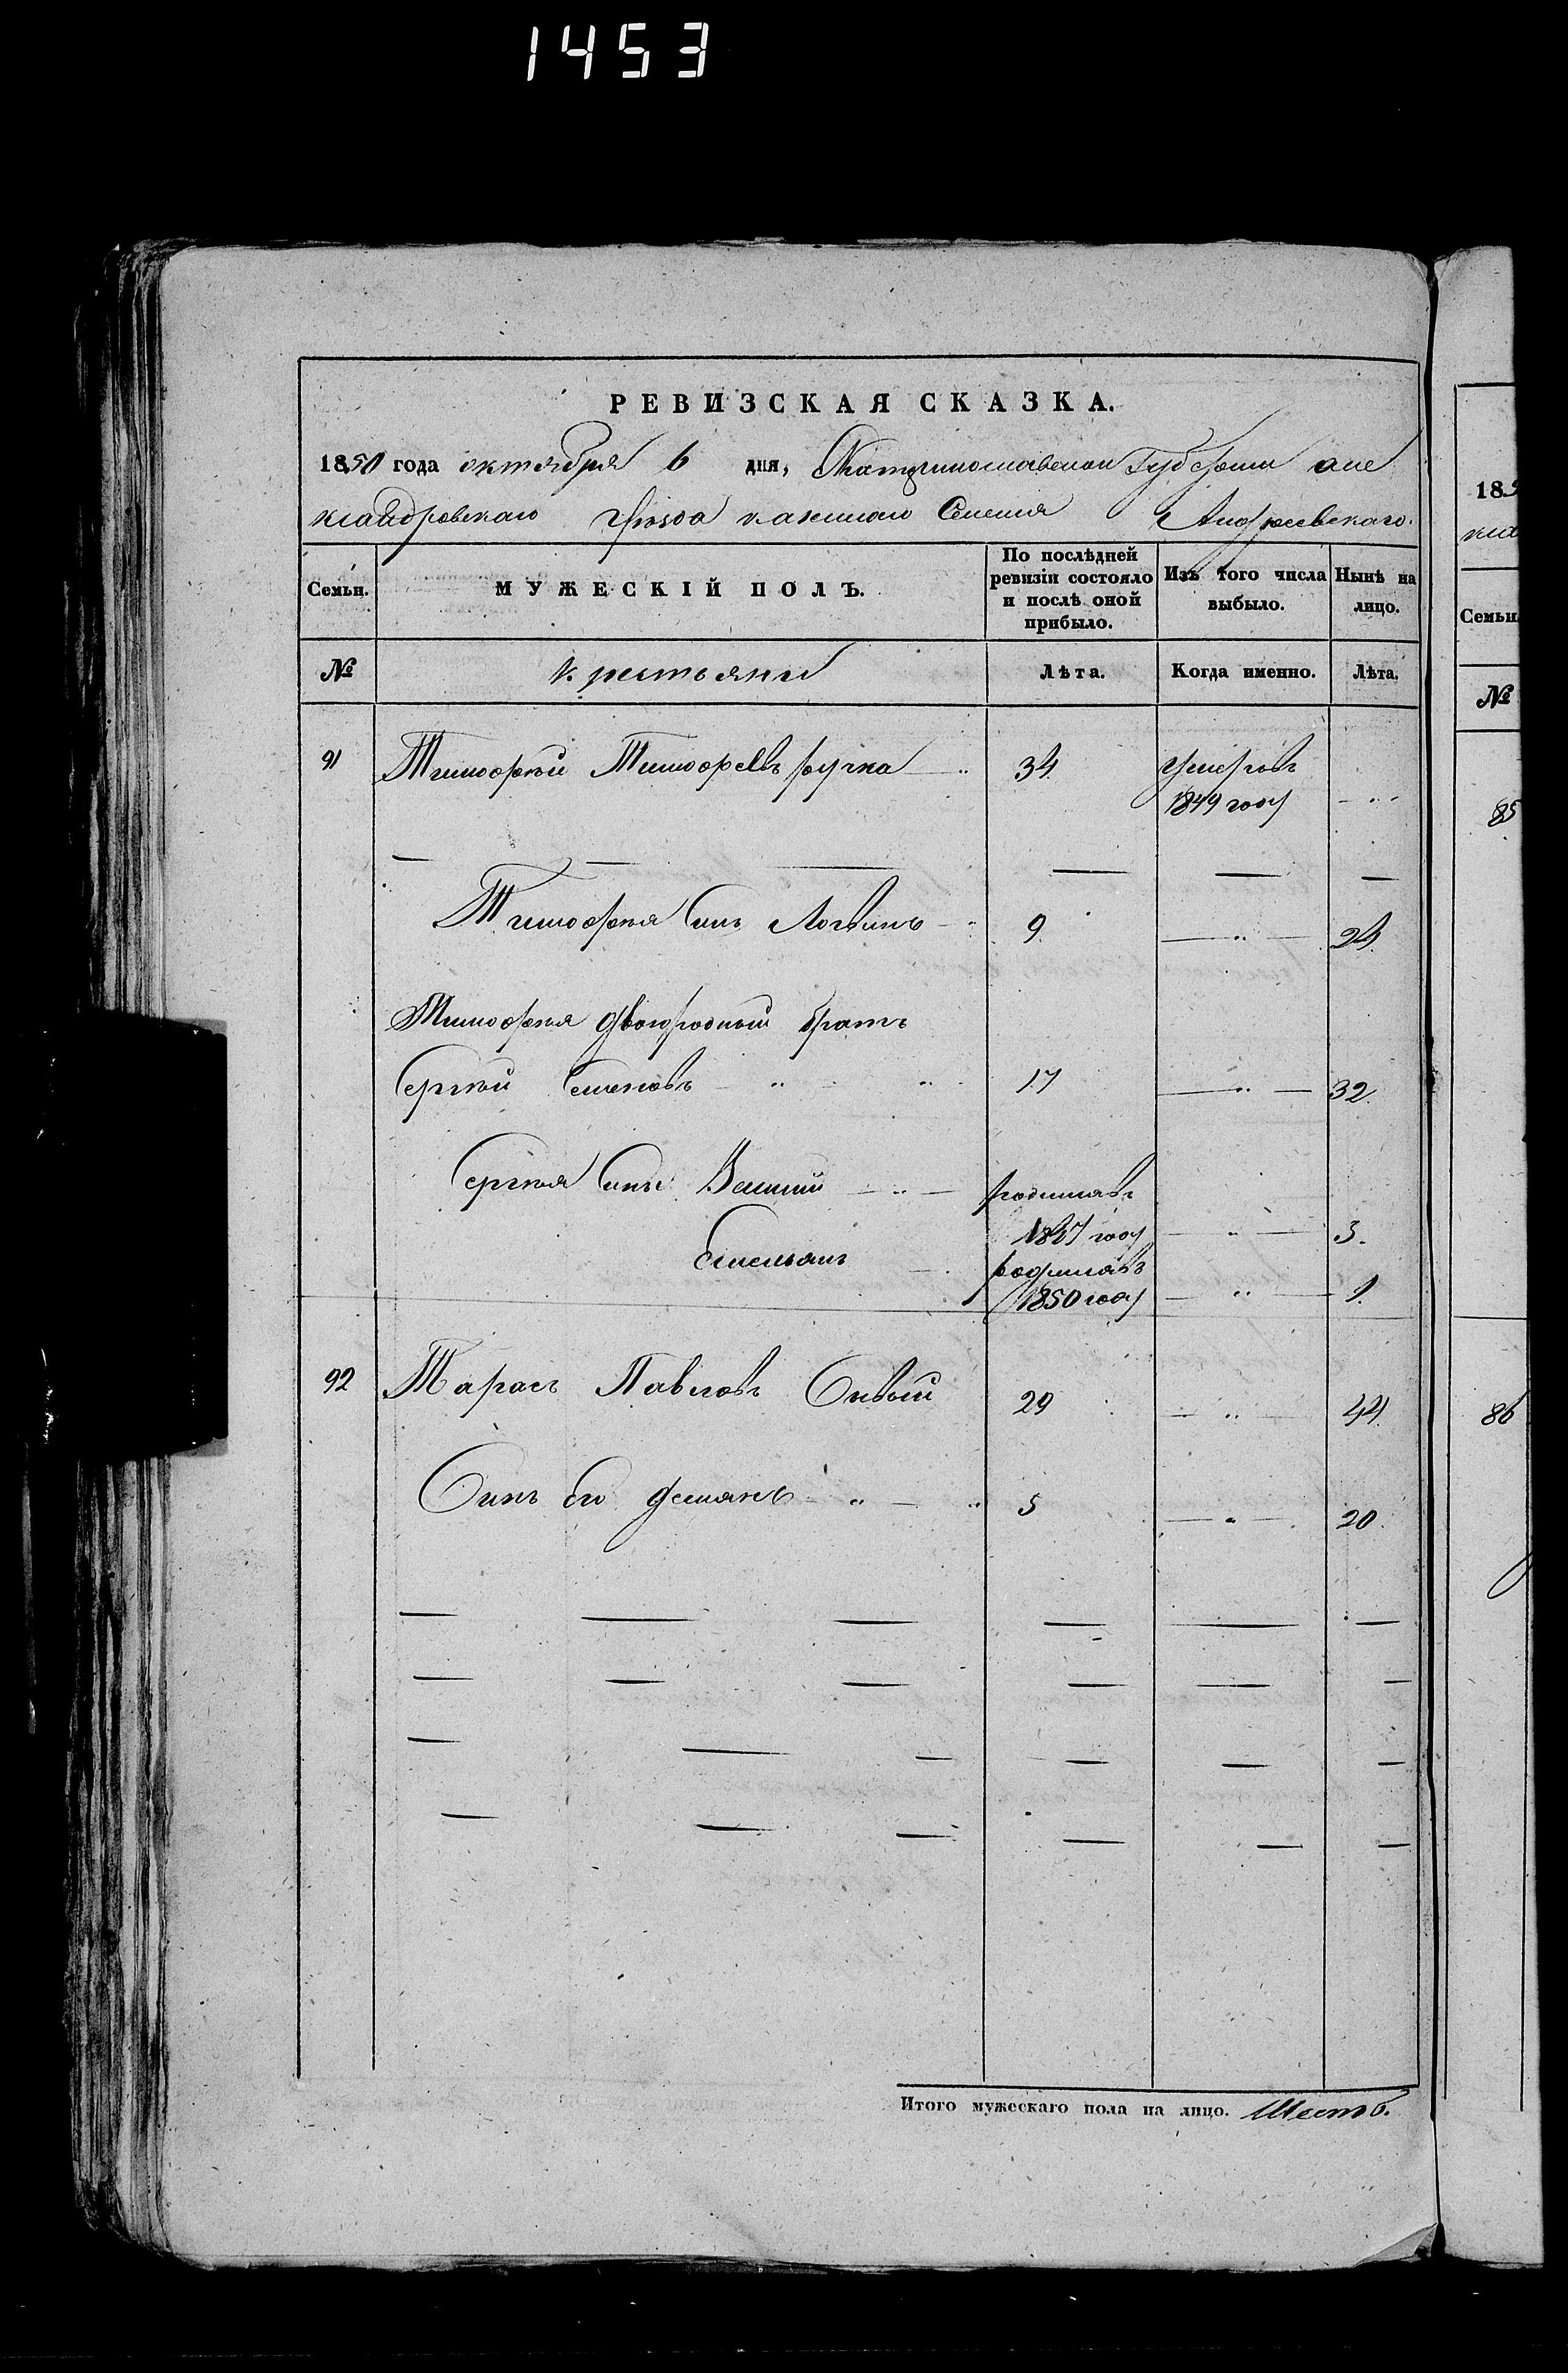 1453
РЕВИЗСКАЯ СКАЗКА.
1850 года октября 6 дня, Екатеринославской Губернии але
ксандровского уѣзда казенного Селения Андреевского.
Семьи. МУЖЕСКІЙ ПОЛЪ. По послѣдней ревизіи состояло и послѣ оной прибыло. Изъ того числа выбыло. Нынѣ на лицо.
№ крестьяне Лѣта. Когда именно. Лѣта.
91 Тимофѣй Тимофеевъ ручка 34 умеръ
1849 году
Тимофѣя Сынъ Логвинъ 9. 24.
Тимофѣя двоюродный братъ
Сергѣй Семеновъ 17 32
Сергѣя Сыны Василий родился
1847 году 3.
Емельянъ родился
1850 году 1.
92 Тарасъ Павловъ Сивый 29 44.
Сынъ Его демянъ 5 20.
Итого мужескаго пола на лицо. Шесть.
185
кса
Семьи
№
85
86